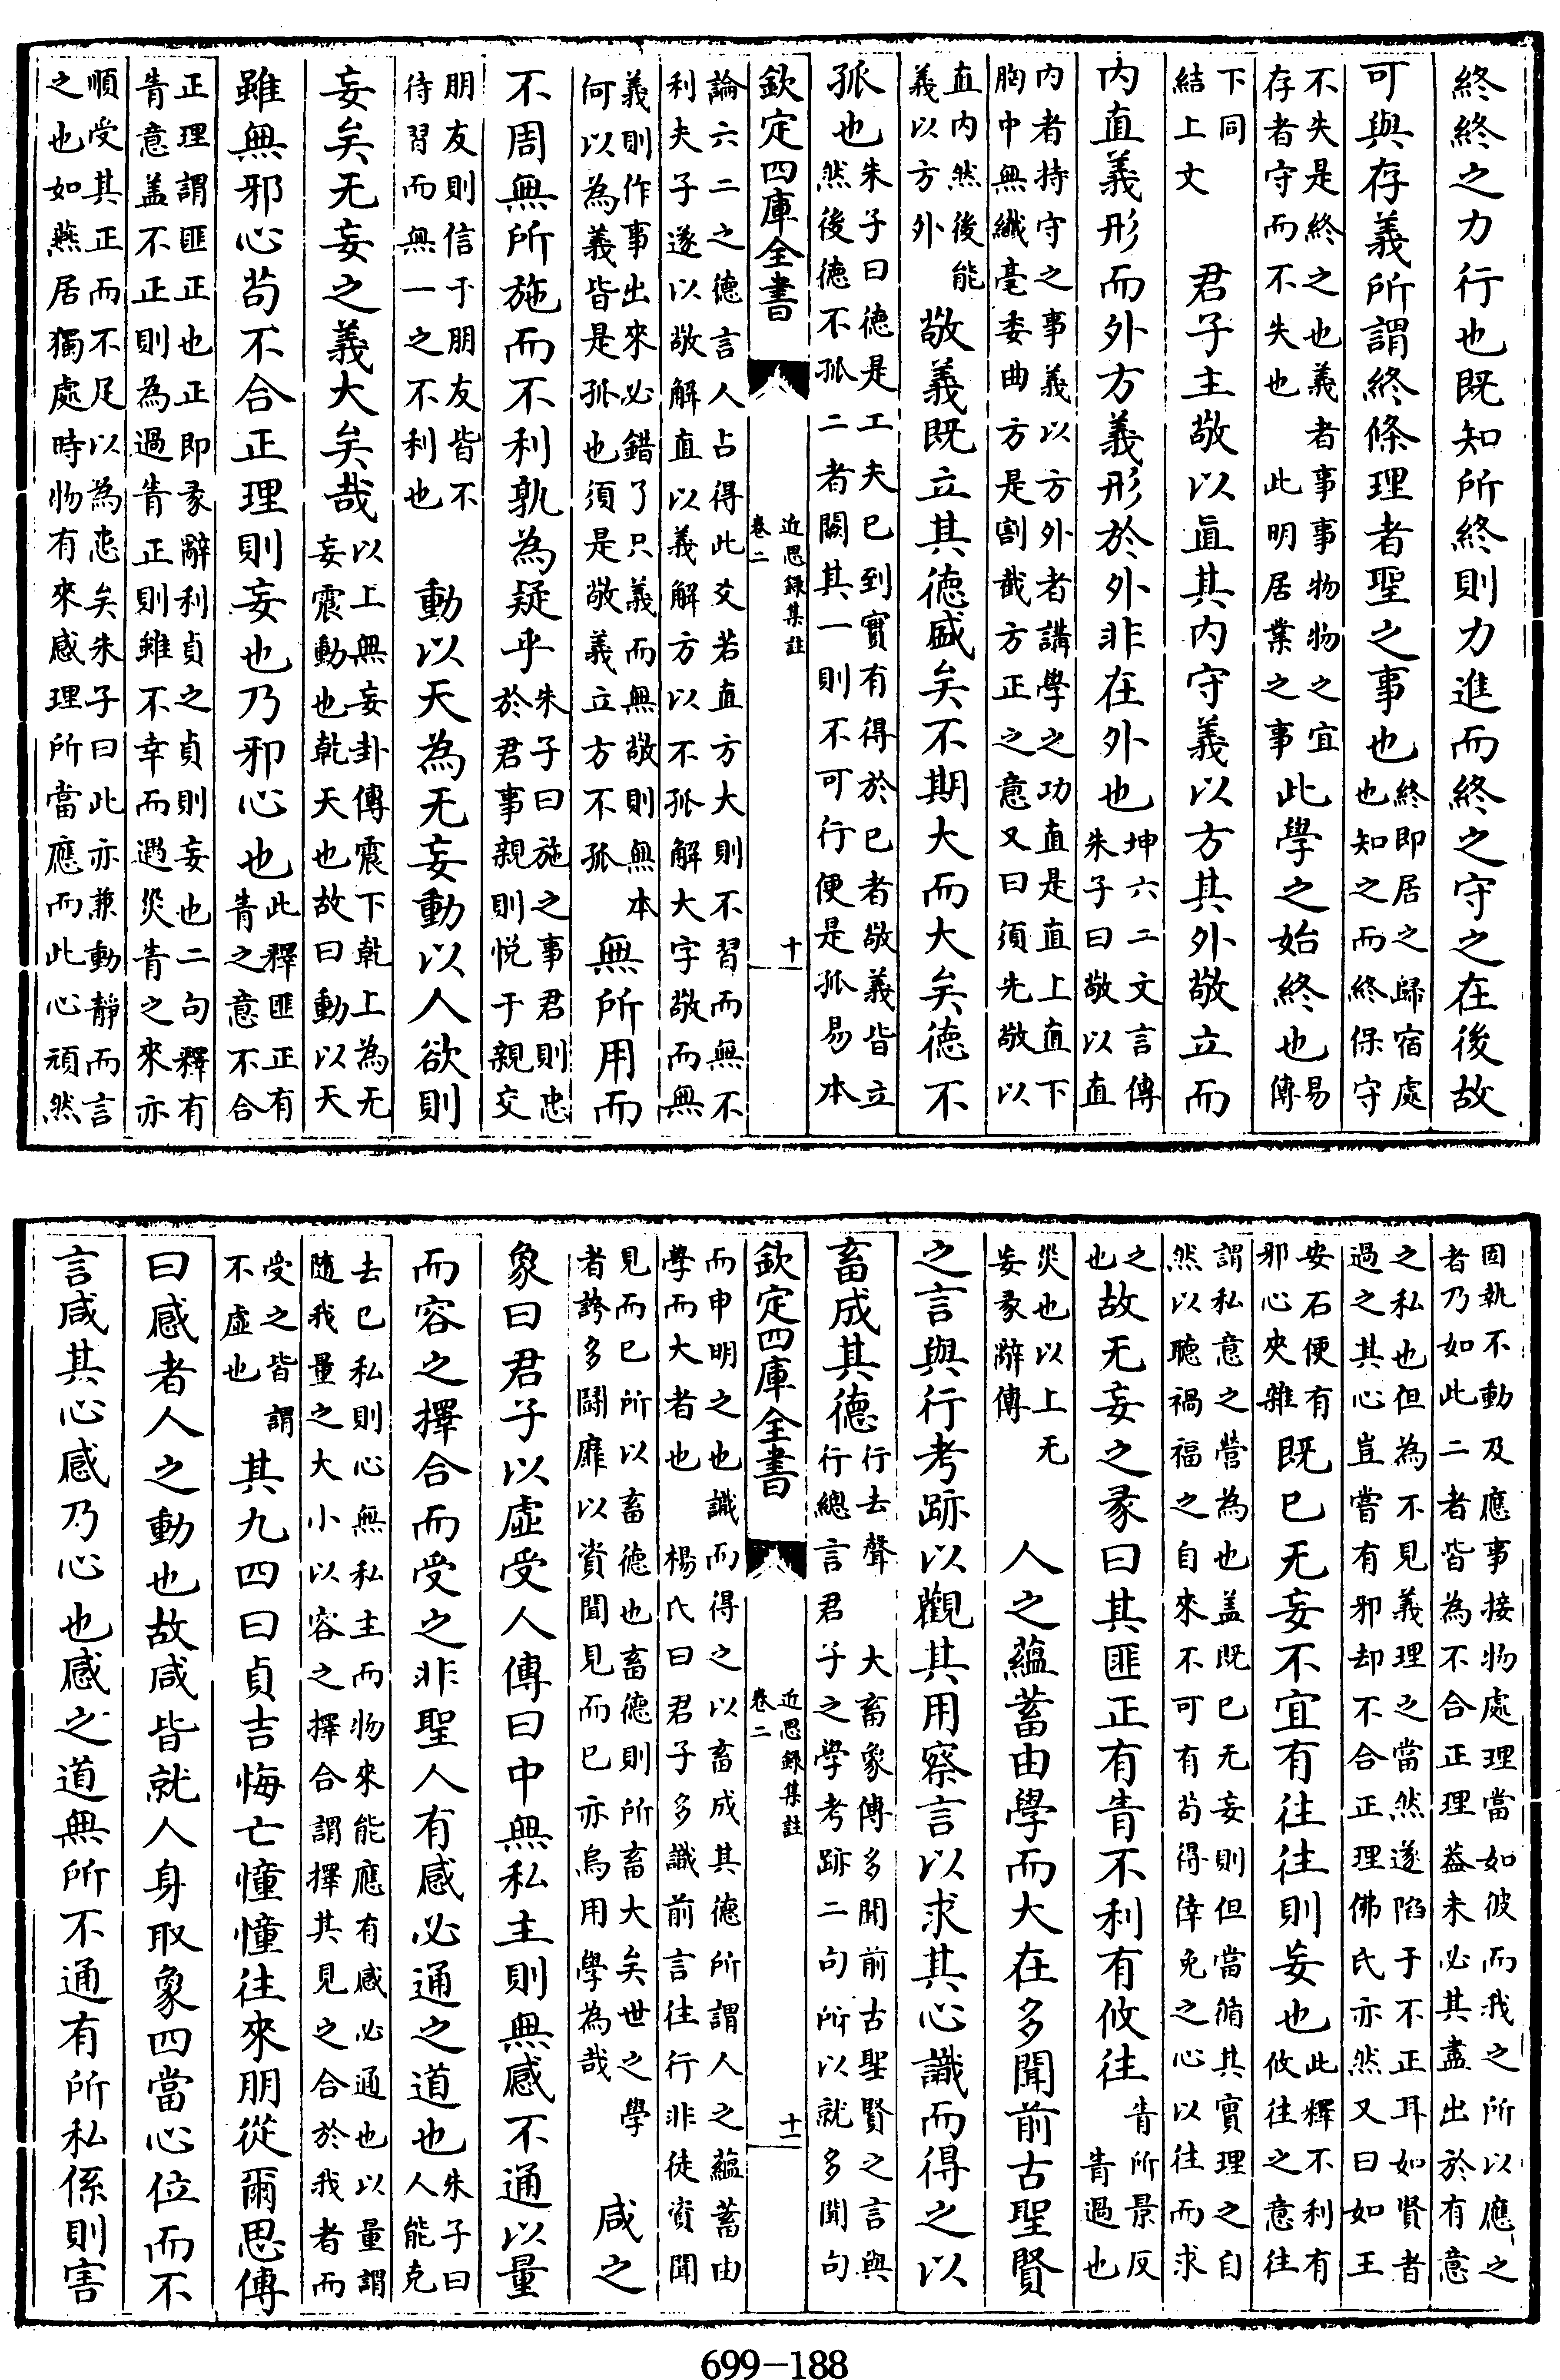 終終之力行也既知所終則力進而終之守之在後故
可與存義所謂終條理者聖之事也終即居之歸宿處
也知之而終保守
不失是終之也義者事事物物之宜
存者守而不失也　此明居業之事此學之始終也易
傳
下同
結上文　君子主敬以直其內守義以方其外敬立而
內直義形而外方義形於外非在外也坤六二文言傳
朱子曰敬以直
內者持守之事義以方外者講學之功直是直上直下
胸中無纖毫委曲方是割截方正之意又曰須先敬以
直內然後能
義以方外敬義既立其德盛矣不期大而大矣德不
孤也朱子曰德是工夫已到實有得於已者敬義皆立
然後德不孤二者闕其一則不可行便是孤易本
欽定四庫全書　近思録集註
卷二　十
論六二之德言人占得此爻若直方大則不習而無不
利夫子遂以敬解直以義解方以不孤解大字敬而無
義則作事出來必錯了只義而無敬則無本
何以為義皆是孤也須是敬義立方不孤無所用而
不周無所施而不利孰為疑乎朱子曰施之事君則忠
於君事親則悦于親交
朋友則信于朋友皆不
待習而無一之不利也　動以天為无妄動以人欲則
妄矣无妄之義大矣哉以上無妄卦傳震下乾上為无
妄震動也乾天也故曰動以天
雖無邪心苟不合正理則妄也乃邪心也此釋匪正有
眚之意不合
正理謂匪正也正即彖辭利貞之貞則妄也二句釋有
眚意盖不正則為過眚正則雖不幸而遇災眚之來亦
順受其正而不足以為恙矣朱子曰此亦兼動靜而言
之也如燕居獨處時物有來感理所當應而此心頑然
固執不動及應事接物處理當如彼而我之所以應之
者乃如此二者皆為不合正理葢未必其盡出於有意
之私也但為不見義理之當然遂陷于不正耳如賢者
過之其心豈嘗有邪却不合正理佛氏亦然又曰如王
安石便有
邪心夾雜既已无妄不宜有往往則妄也此釋不利有
攸往之意往
謂私意之營為也盖既已无妄則但當脩其實理之自
然以聽禍福之自來不可有苟得倖免之心以往而求
之
也故无妄之彖曰其匪正有眚不利有攸往眚所景反
眚過也
災也以上无
妄彖辭傳　人之蘊蓄由學而大在多聞前古聖賢
之言與行考跡以觀其用察言以求其心識而得之以
畜成其德行去聲　大畜象傳多聞前古聖賢之言與
行總言君子之學考跡二句所以就多聞句
欽定四庫全書　近思録集註
卷二　十一
而申明之也識而得之以畜成其德所謂人之蘊蓄由
學而大者也　楊氏曰君子多識前言往行非徒資聞
見而已所以畜德也畜德則所畜大矣世之學
者誇多鬪靡以資聞見而已亦烏用學為哉　咸之
象曰君子以虛受人傳曰中無私主則無感不通以量
而容之擇合而受之非聖人有感必通之道也朱子曰
人能克
去已私則心無私主而物來能應有感必通也以量謂
隨我量之大小以容之擇合謂擇其見之合於我者而
受之皆謂
不虛也其九四曰貞吉悔亡憧憧往來朋從爾思傳
曰感者人之動也故咸皆就人身取象四當心位而不
言咸其心感乃心也感之道無所不通有所私係則害
699-188